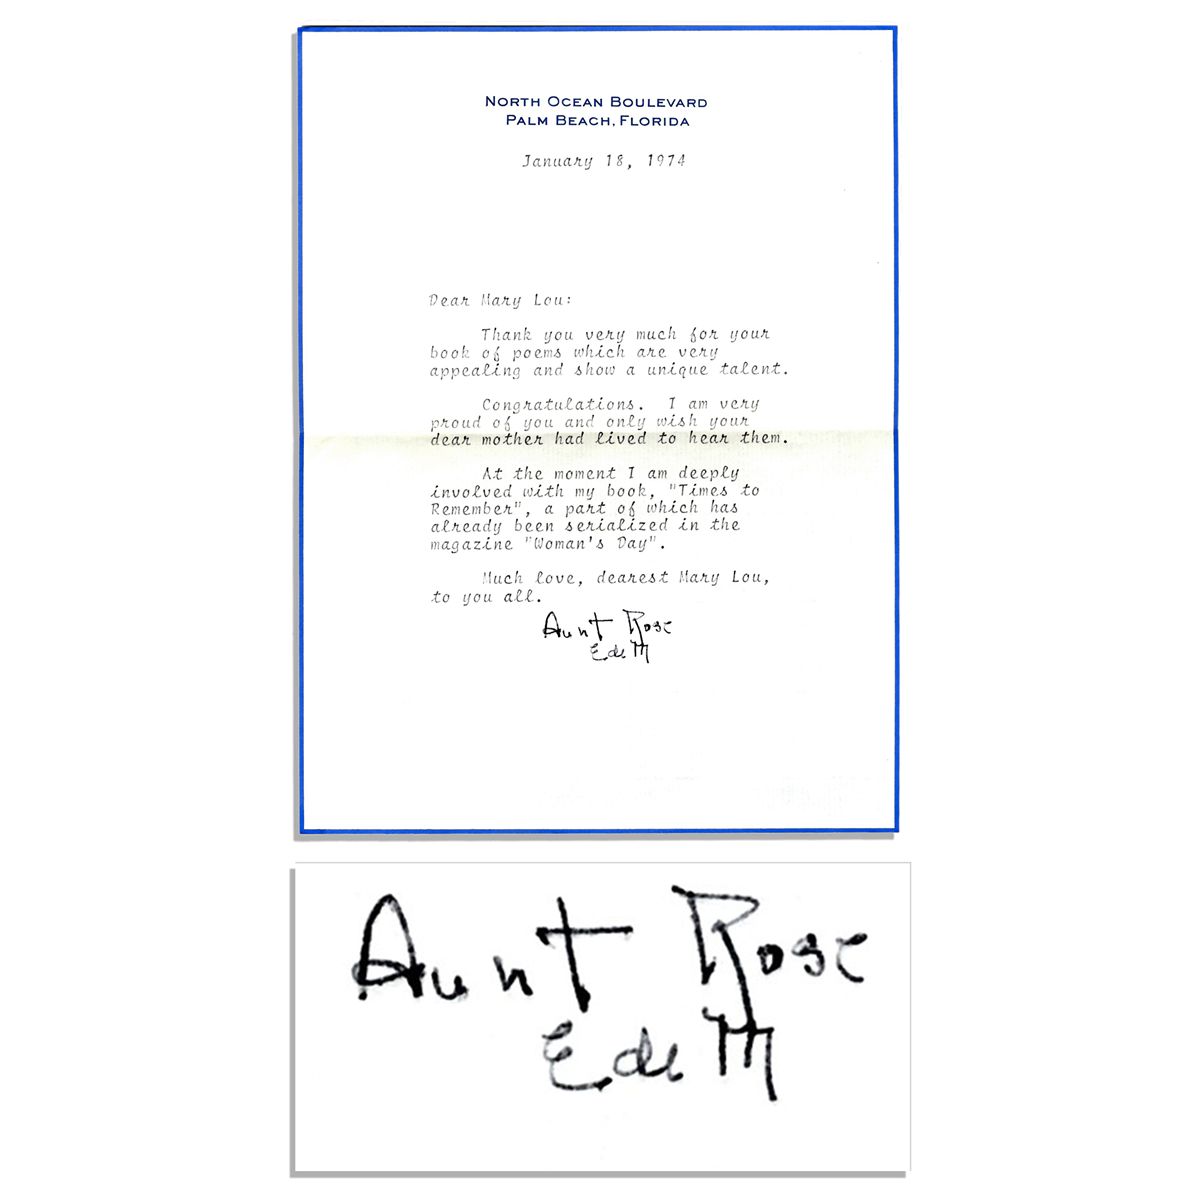 NORTH OCEAN BOULEVARD
PALM BEACH, FLORIDA
January 18, 1974
Dear Mary Lou:
Thank you very much for your
book of poems which are very
appealing and show a unique talent.
Congratulations. I am very
proud of you and only wish your
dear mother had lived to hear them.
At the moment I am deeply
involved with my book, "Times to
Remember", a part of which has
already been serialized in the
magazine "Woman's Day".
Much love, dearest Mary Lou,
to you all.
Aunt Rose
Edith
Aunt Rose
Edith